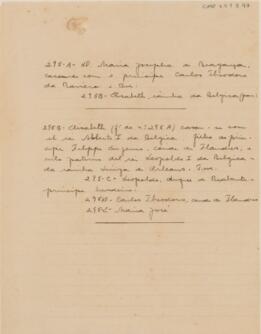 298-A- D. Maria Josepha de Bragança,
casou-se com o principe Carlos Theodoro
da Baviera e teve:
298B- Elisabeth rainha da Belgica
298B- Elisabeth (fª de nº 298A) casou-se com
el rei Alberto I da Belgica, filho do prin-
cipe Filippe Eugenio, conde de Flandres, e
neto paterno del rei Leopoldo I da Belgica e
da rainha Luiza de Orleans. Teve:
298-C- Leopoldo, duque de Brabante
principe herdeiro
298D- Carlos Theodoro, conde de Flandres
298E- Maria José